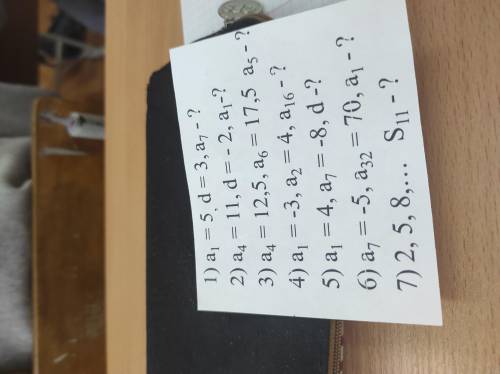 1) a₁ = 5, d = 3, a₇ - ?
2) a₄ = 11, d = - 2, a₁-?
3) a₄ = 12,5, a₆ = 17,5 a₅ - ?
4) a₁ = -3, a₂ = 4, a₁₆ - ?
5) a₁ = 4, a₇ = -8, d -?
6) a₇ = -5, a₃₂ = 70, a₁ - ?
7) 2, 5, 8,... S₁₁ - ?